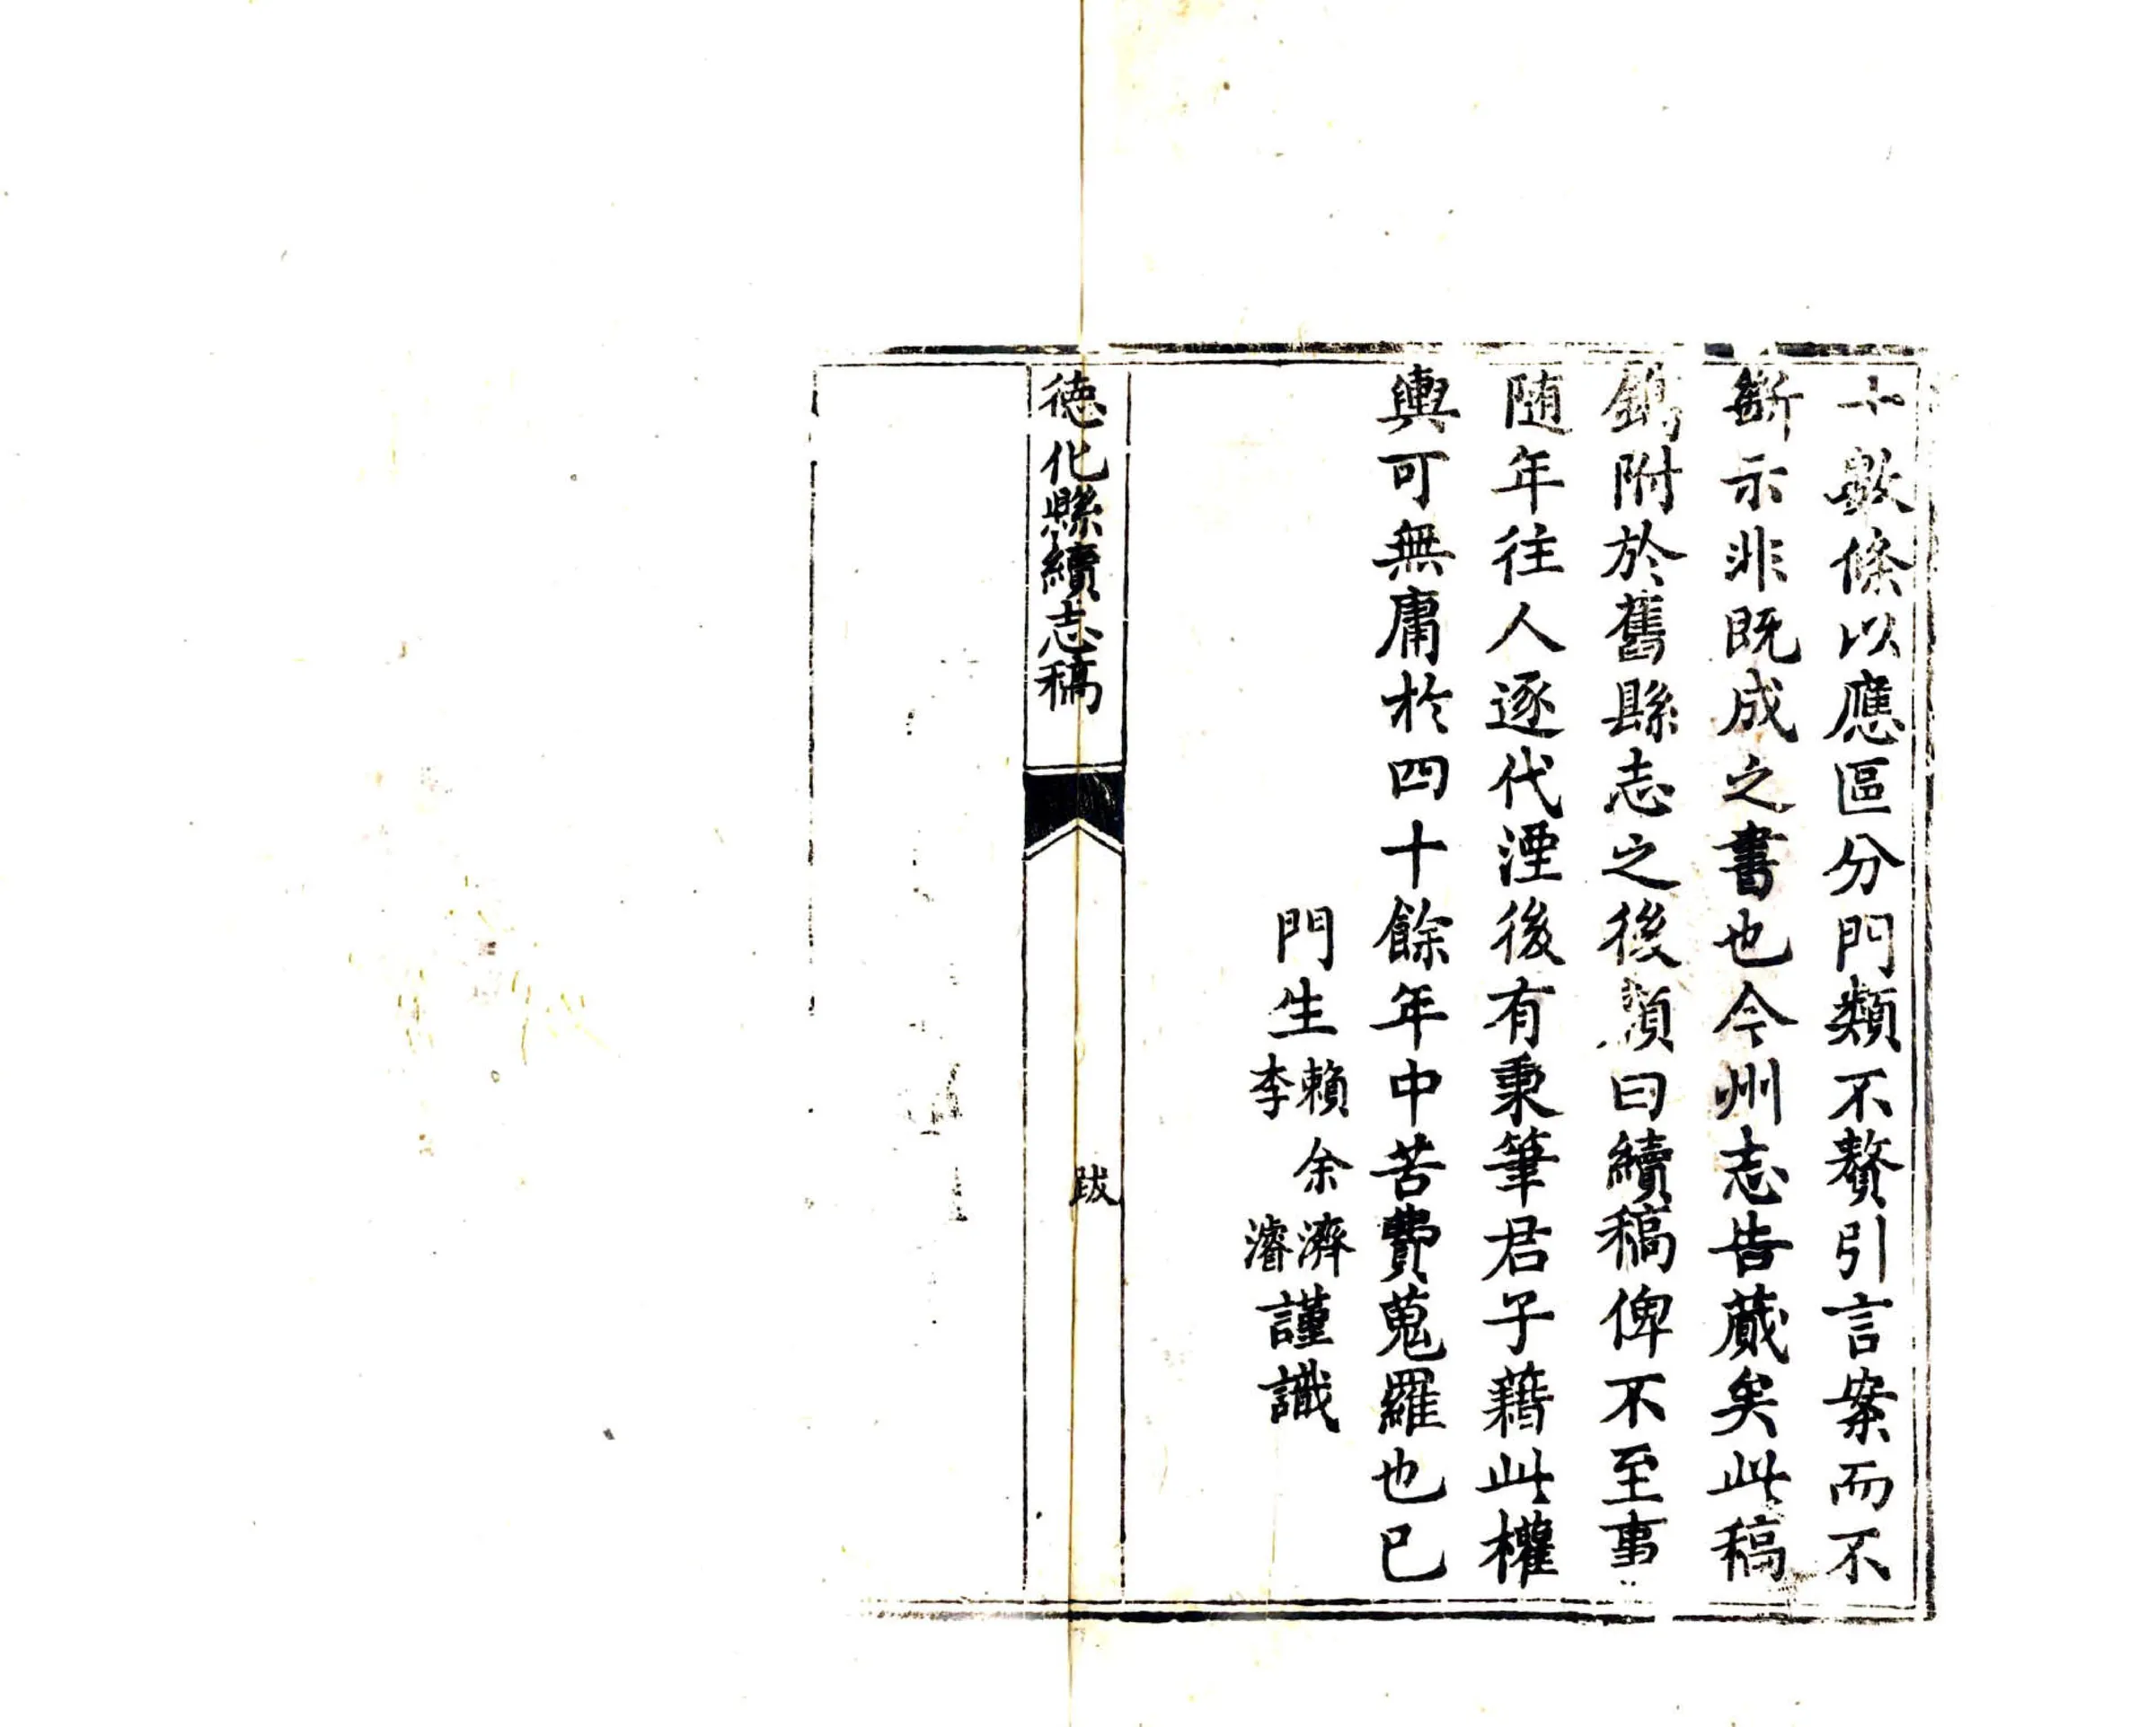 十數條以應區分門類不贅引言案而不
斷示非既成之書也今州志告蕆矣此稿
鐫附於舊縣志之後顏曰續稿俾不至事
隨年往人逐代湮後有秉筆君子藉此權
輿可無庸於四十餘年中苦費蒐羅也已
門生賴余濟
李濬謹識
德化縣續志稿
跋